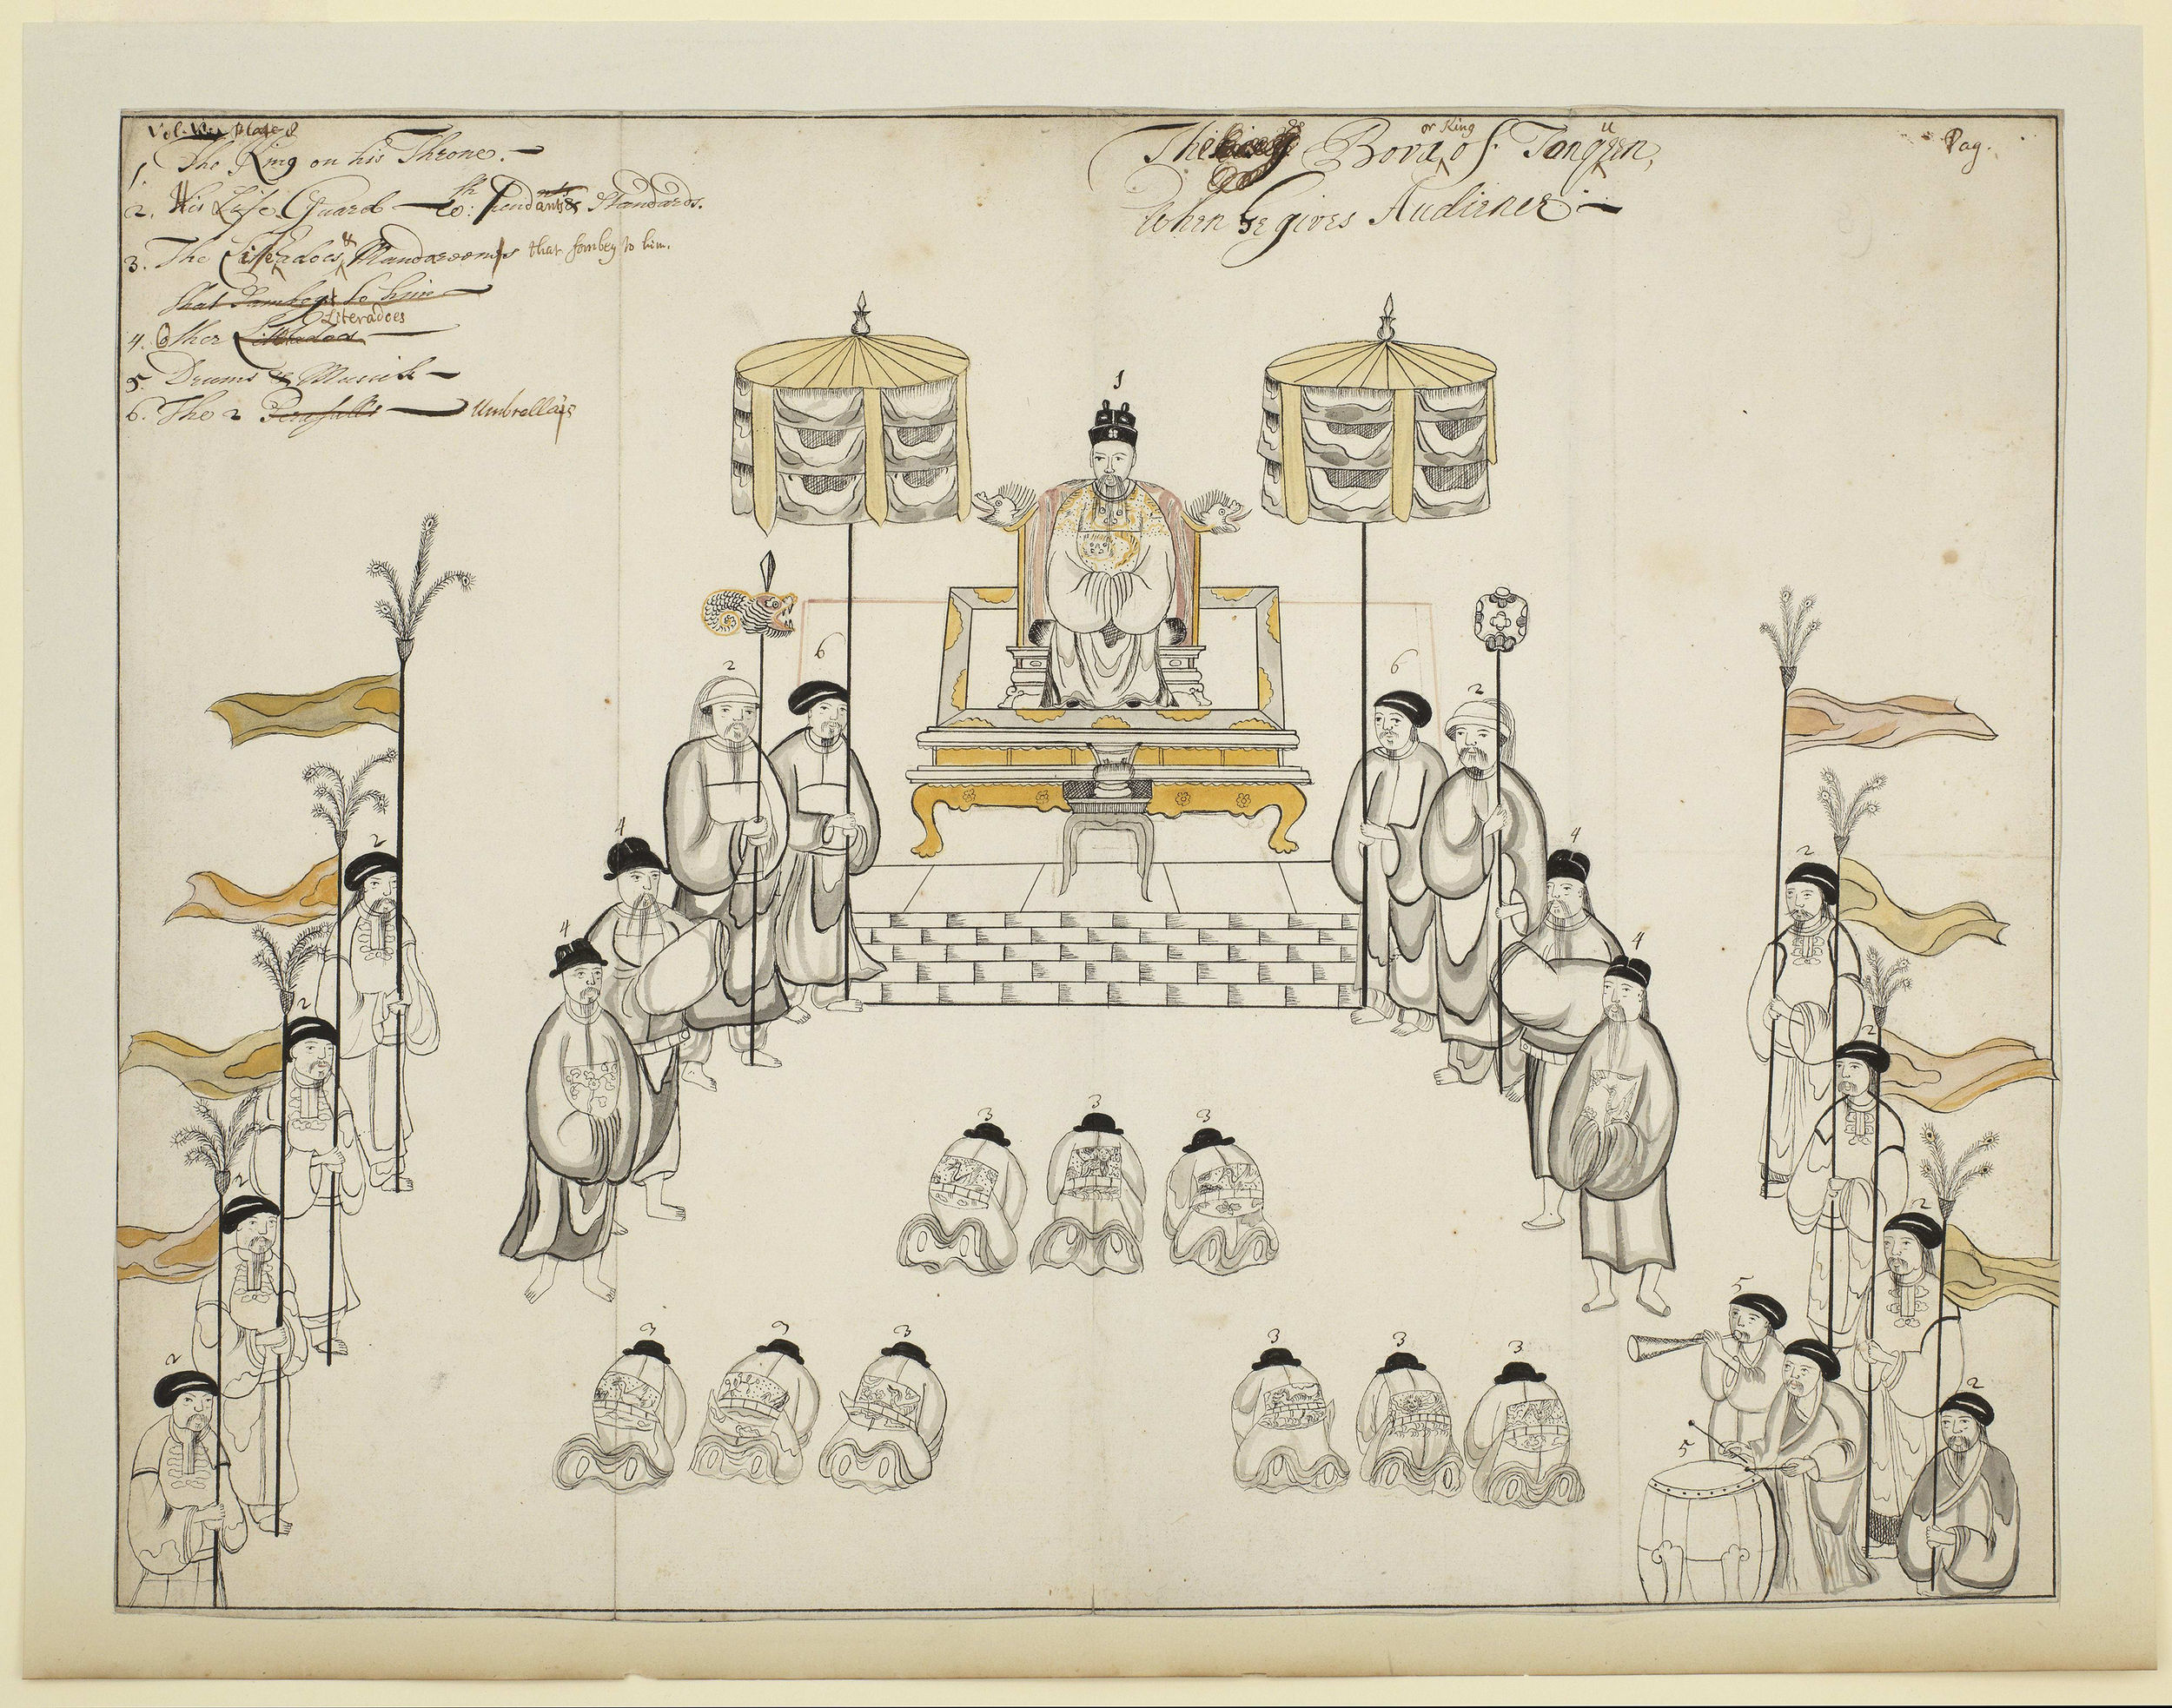 Vol. Plate 8
1. The King on his Throne.
2. His Life Guard wth Pendants & Standards.
3. The Literadoes & Mandareens that sombey to him.
that Sombey to him
4. Other Literadoes
5. Drums & Musick
6. The 2 Umbrellays
The Bova or King of Tonquen,
When he gives Audience
Pag.
1
6
6
2
2
4
4
4
4
2
2
2
2
2
2
2
2
3
3
3
3
3
3
3
3
3
5
5